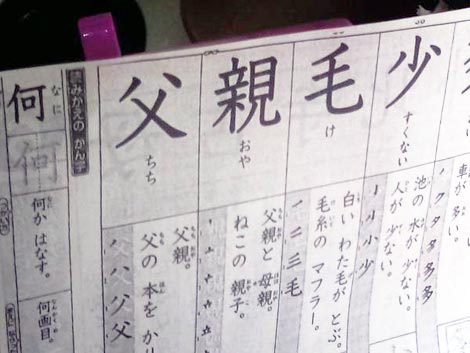 車が 多い。
ノ ク タ 多 多 多
少
すくない
池の 水が 少ない。
人が 少ない。
亅 小 小 少
毛
け
白い わた毛が とぶ。
毛糸の マフラー。
一 二 三 毛
親
おや
父親と 母親。
ねこの 親子。
父
ちち
父親。
父の 本を かり
ノ ハ グ 父
みかえの かん字
何
なに
何
何か はなす。
何画目。